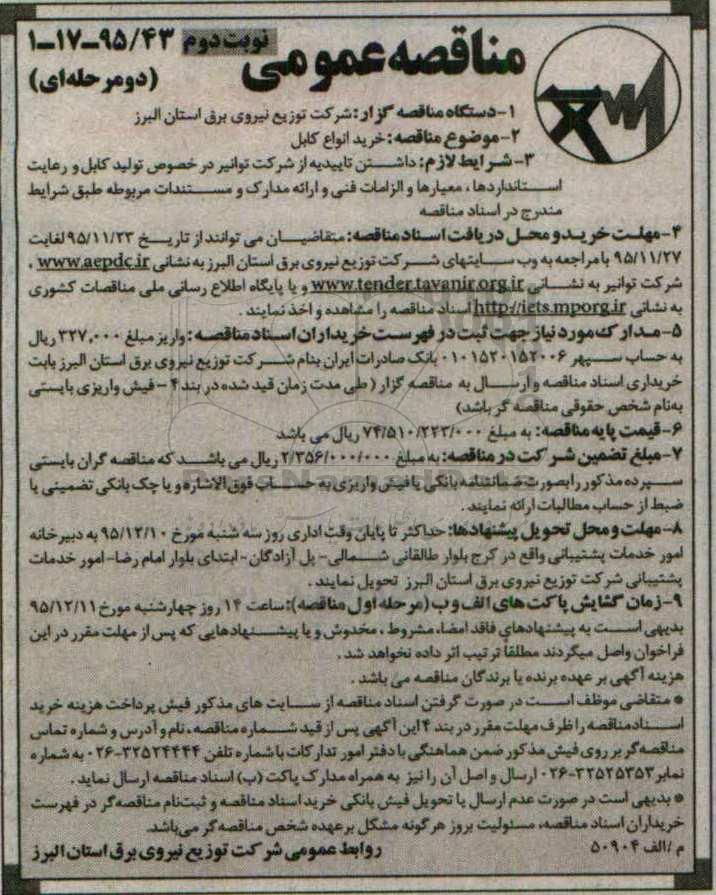 نوبت دوم ۹۵/۴۳-۱۷-۱
مناقصه عمومی
(دو مرحله‌ای)
۱-دستگاه مناقصه گزار: شرکت توزیع نیروی برق استان البرز
۲-موضوع مناقصه: خرید انواع کابل
۳-شرایط لازم: داشتن تاییدیه از شرکت توانیر در خصوص تولید کابل و رعایت
استانداردها، معیارها و الزامات فنی و ارائه مدارک و مستندات مربوطه طبق شرایط
مندرج در اسناد مناقصه
۴-مهلت خرید و محل دریافت اسناد مناقصه: متقاضیان می توانند از تاریخ ۹۵/۱۱/۲۳ لغایت
۹۵/۱۱/۲۷ با مراجعه به وب سایتهای شرکت توزیع نیروی برق استان البرز به نشانی www.aepdc.ir ،
شرکت توانیر به نشانی www.tender.tavanir.org.ir و یا پایگاه اطلاع رسانی ملی مناقصات کشوری
به نشانی http://iets.mporg.ir اسناد مناقصه را مشاهده و اخذ نمایند.
۵-مدارک مورد نیاز جهت ثبت در فهرست خریداران اسناد مناقصه: واریز مبلغ ۳۲۷,۰۰۰ ریال
به حساب سپهر ۰۱۰۱۵۲۰۱۵۲۰۰۶ بانک صادرات ایران بنام شرکت توزیع نیروی برق استان البرز بابت
خریداری اسناد مناقصه و ارسال به مناقصه گزار (طی مدت زمان قید شده در بند ۴ - فیش واریزی بایستی
به‌نام شخص حقوقی مناقصه گر باشد)
۶-قیمت پایه مناقصه: به مبلغ ۷۴/۵۱۰/۲۲۳/۰۰۰ ریال می باشد
۷-مبلغ تضمین شرکت در مناقصه: به مبلغ ۲/۳۵۶/۰۰۰/۰۰۰ ریال می باشد که مناقصه گران بایستی
سپرده مذکور را بصورت ضمانتنامه بانکی یا فیش واریزی به حساب فوق الاشاره و یا چک بانکی تضمینی یا
ضبط از حساب مطالبات ارائه نمایند.
۸-مهلت و محل تحویل پیشنهادها: حداکثر تا پایان وقت اداری روز سه شنبه مورخ ۹۵/۱۲/۱۰ به دبیرخانه
امور خدمات پشتیبانی واقع در کرج بلوار طالقانی شمالی- پل آزادگان - ابتدای بلوار امام رضا- امور خدمات
پشتیبانی شرکت توزیع نیروی برق استان البرز تحویل نمایند.
۹-زمان گشایش پاکت های الف و ب (مرحله اول مناقصه): ساعت ۱۴ روز چهارشنبه مورخ ۹۵/۱۲/۱۱
بدیهی است به پیشنهادهای فاقد امضا، مشروط ، مخدوش و یا پیشنهادهایی که پس از مهلت مقرر در این
فراخوان واصل میگردند مطلقاً ترتیب اثر داده نخواهد شد.
هزینه آگهی بر عهده برنده یا برندگان مناقصه می باشد.
* متقاضی موظف است در صورت گرفتن اسناد مناقصه از سایت های مذکور فیش پرداخت هزینه خرید
اسناد مناقصه را ظرف مهلت مقرر در بند ۴ این آگهی پس از قید شماره مناقصه، نام و آدرس و شماره تماس
مناقصه‌گر بر روی فیش مذکور ضمن هماهنگی با دفتر امور تدارکات با شماره تلفن ۳۲۵۲۴۴۴۴-۰۲۶ به شماره
نمابر ۳۲۵۲۵۳۵۳-۰۲۶ ارسال و اصل آن را نیز به همراه مدارک پاکت (ب) اسناد مناقصه ارسال نماید.
* بدیهی است در صورت عدم ارسال یا تحویل فیش بانکی خرید اسناد مناقصه و ثبت‌نام مناقصه‌گر در فهرست
خریداران اسناد مناقصه، مسئولیت بروز هرگونه مشکل برعهده شخص مناقصه‌گر می‌باشد.
م/الف ۵۰۹۰۴
روابط عمومی شرکت توزیع نیروی برق استان البرز